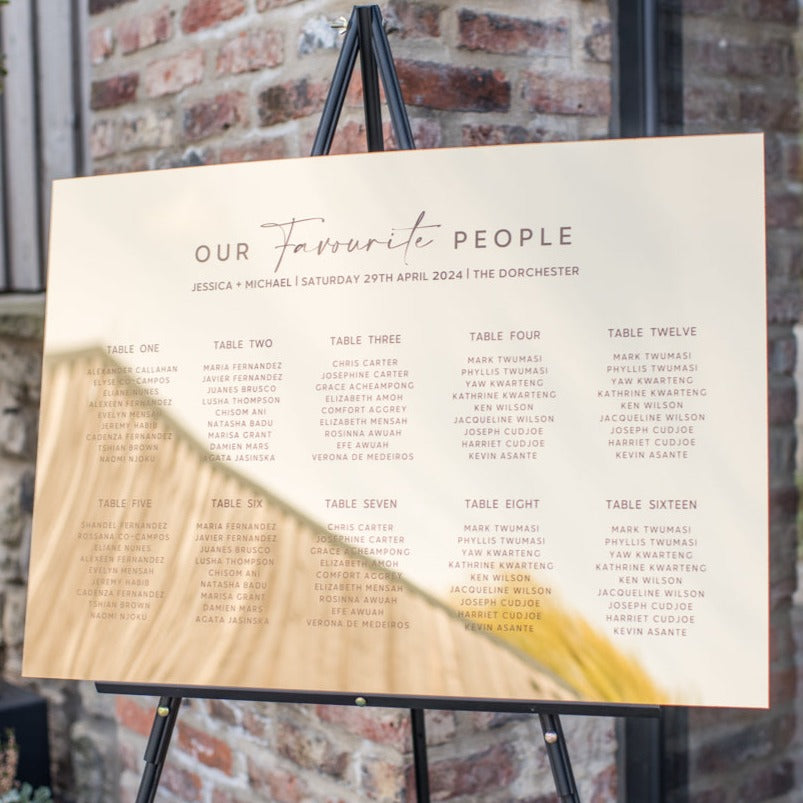 OUR Favourite PEOPLE
JESSICA + MICHAEL | SATURDAY 29TH APRIL 2024 | THE DORCHESTER
TABLE ONE
ALEXANDER CALLAHAN
ELYSE CO-CAMPOS
ELIANE NUNES
ALEXEEN FERNANDEZ
EVELYN MENSAH
JEREMY HABIB
CADENZA FERNANDEZ
TSHIAN BROWN
NAOMI NJOKU
TABLE TWO
MARIA FERNANDEZ
JAVIER FERNANDEZ
JUANES BRUSCO
LUSHA THOMPSON
CHISOM ANI
NATASHA BADU
MARISA GRANT
DAMIEN MARS
AGATA JASINSKA
TABLE THREE
CHRIS CARTER
JOSEPHINE CARTER
GRACE ACHEAMPONG
ELIZABETH AMOH
COMFORT AGGREY
ELIZABETH MENSAH
ROSINNA AWUAH
EFE AWUAH
VERONA DE MEDEIROS
TABLE FOUR
MARK TWUMASI
PHYLLIS TWUMASI
YAW KWARTENG
KATHRINE KWARTENG
KEN WILSON
JACQUELINE WILSON
JOSEPH CUDJOE
HARRIET CUDJOE
KEVIN ASANTE
TABLE TWELVE
MARK TWUMASI
PHYLLIS TWUMASI
YAW KWARTENG
KATHRINE KWARTENG
KEN WILSON
JACQUELINE WILSON
JOSEPH CUDJOE
HARRIET CUDJOE
KEVIN ASANTE
TABLE FIVE
SHANDEL FERNANDEZ
ROSSANA CO-CAMPOS
ELIANE NUNES
ALEXEEN FERNANDEZ
EVELYN MENSAH
JEREMY HABIB
CADENZA FERNANDEZ
TSHIAN BROWN
NAOMI NJOKU
TABLE SIX
MARIA FERNANDEZ
JAVIER FERNANDEZ
JUANES BRUSCO
LUSHA THOMPSON
CHISOM ANI
NATASHA BADU
MARISA GRANT
DAMIEN MARS
AGATA JASINSKA
TABLE SEVEN
CHRIS CARTER
JOSEPHINE CARTER
GRACE ACHEAMPONG
ELIZABETH AMOH
COMFORT AGGREY
ELIZABETH MENSAH
ROSINNA AWUAH
EFE AWUAH
VERONA DE MEDEIROS
TABLE EIGHT
MARK TWUMASI
PHYLLIS TWUMASI
YAW KWARTENG
KATHRINE KWARTENG
KEN WILSON
JACQUELINE WILSON
JOSEPH CUDJOE
HARRIET CUDJOE
KEVIN ASANTE
TABLE SIXTEEN
MARK TWUMASI
PHYLLIS TWUMASI
YAW KWARTENG
KATHRINE KWARTENG
KEN WILSON
JACQUELINE WILSON
JOSEPH CUDJOE
HARRIET CUDJOE
KEVIN ASANTE